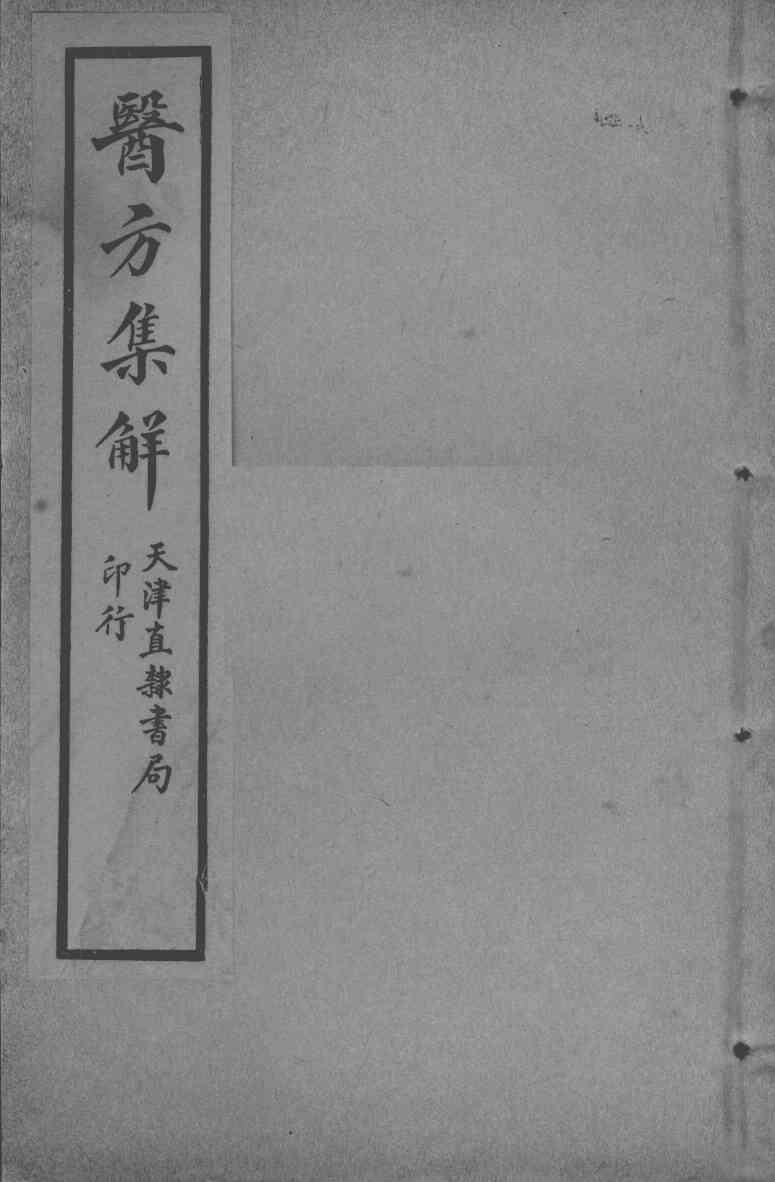 醫方集解
天津直隸書局
印行